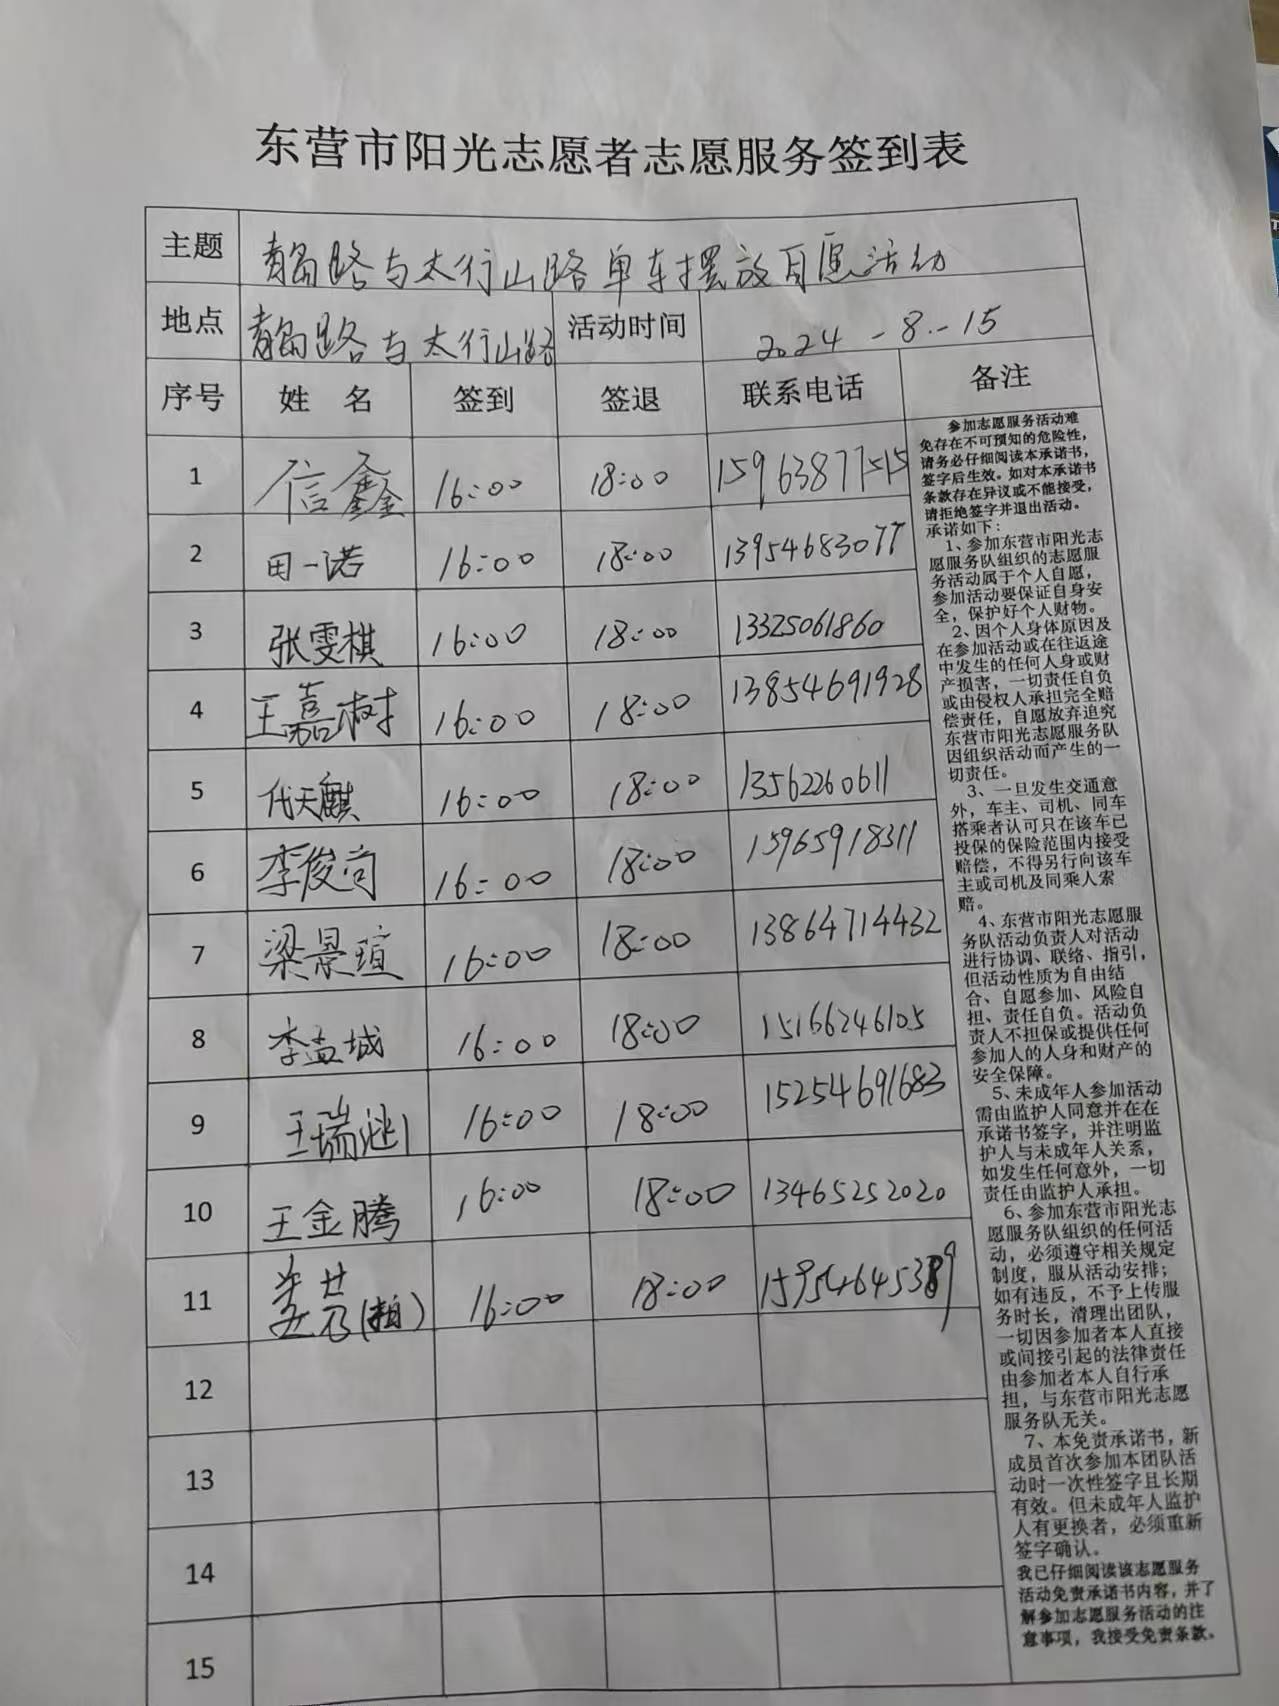 东营市阳光志愿者志愿服务签到表
主题 青岛路与太行山路单车摆放自愿活动
地点 青岛路与太行山路 活动时间 2024-8-15
序号 姓名 签到 签退 联系电话 备注
1 信鑫 16:00 18:00 15963877515
2 田一诺 16:00 18:00 13954683077
3 张雯棋 16:00 18:00 13325061860
4 王嘉树 16:00 18:00 13854691928
5 代天麒 16:00 18:00 13562260611
6 李俊尚 16:00 18:00 15965918311
7 梁景瑄 16:00 18:00 13864714432
8 李孟城 16:00 18:00 15166246105
9 王瑞涵 16:00 18:00 15254691683
10 王金腾 16:00 18:00 13465252020
11 (拍) 16:00 18:00
12
13
14
15
参加志愿服务活动难
免存在不可预知的危险性，
请务必仔细阅读本承诺书，
签字后生效。如对本承诺书
条款存在异议或不能接受，
请拒绝签字并退出活动。
承诺如下：
1、参加东营市阳光志
愿服务队组织的志愿服
务活动属于个人自愿，
参加活动要保证自身安
全，保护好个人财物。
2、因个人身体原因及
在参加活动或在往返途
中发生的任何人身或财
产损害，一切责任自负
或由侵权人承担完全赔
偿责任，自愿放弃追究
东营市阳光志愿服务队
因组织活动而产生的一
切责任。
3、一旦发生交通意
外，车主、司机、同车
搭乘者认可只在该车已
投保的保险范围内接受
赔偿，不得另行向该车
主或司机及同乘人索
赔。
4、东营市阳光志愿服
务队活动负责人对活动
进行协调、联络、指引，
但活动性质为自由结
合、自愿参加、风险自
担、责任自负。活动负
责人不担保或提供任何
参加人的人身和财产的
安全保障。
5、未成年人参加活动
需由监护人同意并在在
承诺书签字，并注明监
护人与未成年人关系，
如发生任何意外，一切
责任由监护人承担。
6、参加东营市阳光志
愿服务队组织的任何活
动，必须遵守相关规定
制度，服从活动安排；
如有违反，不予上传服
务时长，清理出团队，
一切因参加者本人直接
或间接引起的法律责任
由参加者本人自行承
担，与东营市阳光志愿
服务队无关。
7、本免责承诺书，新
成员首次参加本团队活
动时一次性签字且长期
有效。但未成年人监护
人有更换者，必须重新
签字确认。
我已仔细阅读该志愿服务
活动免责承诺书内容，并了
解参加志愿服务活动的注
意事项，我接受免责条款。